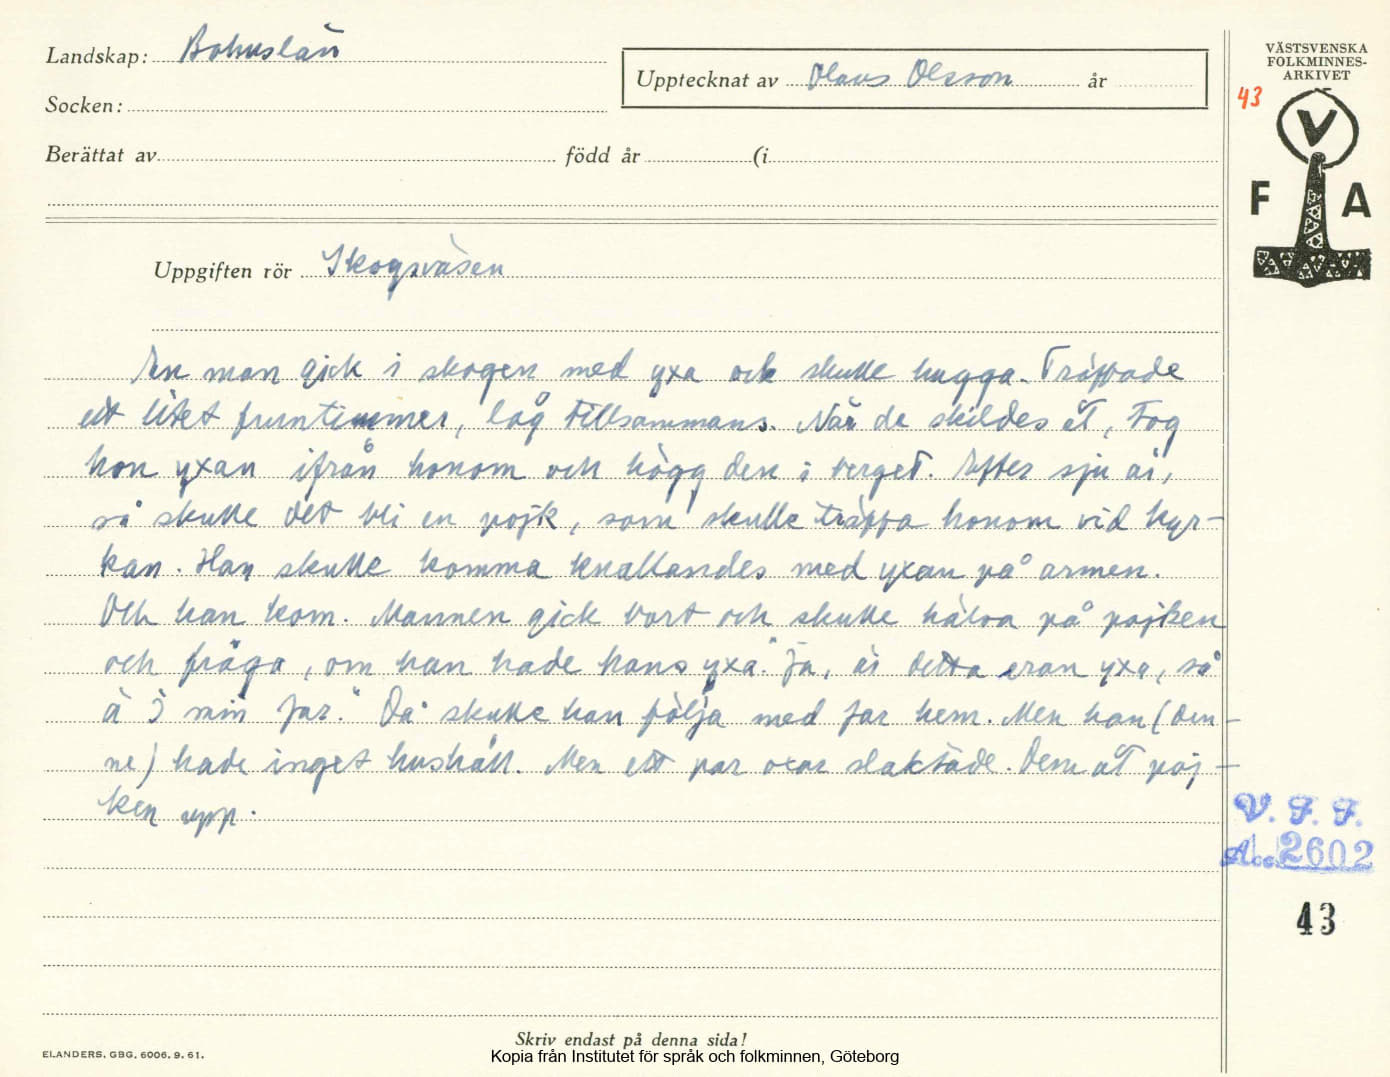 Landskap: Bohuslän
Upptecknat av Olaus Olsson år
Socken:
Berättat av född år (i
VÄSTSVENSKA
FOLKMINNES-
ARKIVET
43
V
F A
Uppgiften rör Skogsväsen
En man gick i skogen med yxa och skulle hugga. Träffade
ett litet fruntimmer, låg tillsammans. När de skildes åt, tog
hon yxan ifrån honom och högg den i berget. Efter sju år,
så skulle det bli en pojk, som skulle träffa honom vid kyr-
kan. Han skulle komma knallandes med yxan på armen.
Och han kom. Mannen gick bort och skulle hälsa på pojken
och fråga, om han hade hans yxa. "Ja, är detta eran yxa, så
ä I min far." Då skulle han följa med far hem. Men han (den-
ne) hade inget hushåll. Men ett par oxar slaktade. Dem åt poj-
ken upp.
V. F. F.
Acc. 2602
43
Skriv endast på denna sida!
ELANDERS, GBG, 6006. 9. 61.
Kopia från Institutet för språk och folkminnen, Göteborg